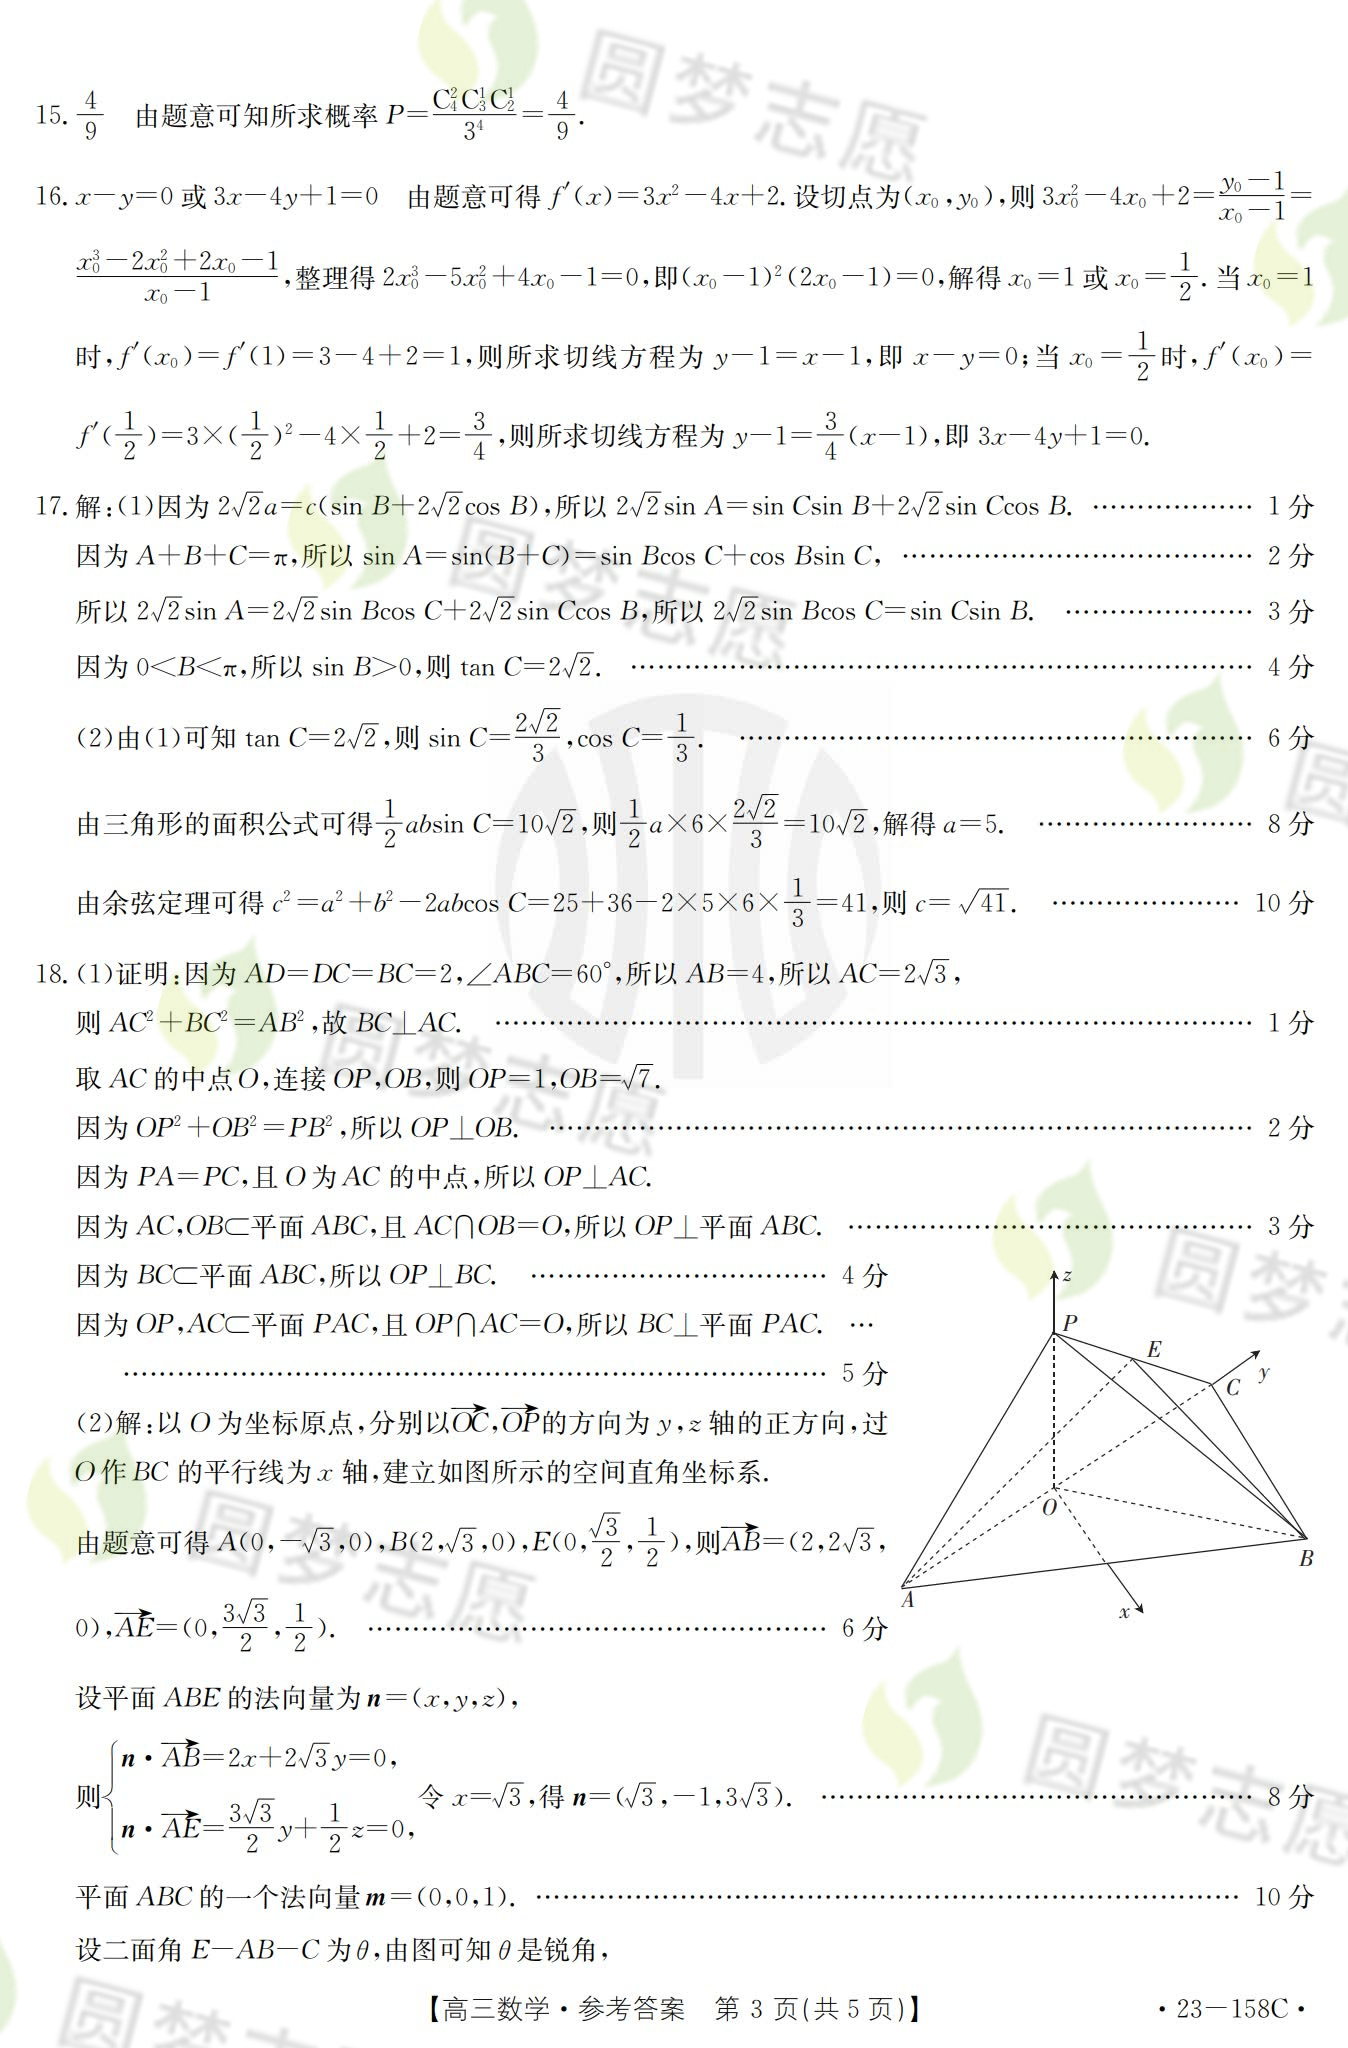 15. 4/9 由题意可知所求概率 P=C₄²C₃¹C₂¹/3⁴=4/9.
16. x−y=0 或 3x−4y+1=0 由题意可得 f′(x)=3x²−4x+2. 设切点为(x₀,y₀),则 3x₀²−4x₀+2=(y₀−1)/(x₀−1)=
(x₀³−2x₀²+2x₀−1)/(x₀−1),整理得 2x₀³−5x₀²+4x₀−1=0,即(x₀−1)²(2x₀−1)=0,解得 x₀=1 或 x₀=1/2. 当 x₀=1
时,f′(x₀)=f′(1)=3−4+2=1,则所求切线方程为 y−1=x−1,即 x−y=0;当 x₀=1/2 时,f′(x₀)=
f′(1/2)=3×(1/2)²−4×1/2+2=3/4,则所求切线方程为 y−1=3/4(x−1),即 3x−4y+1=0.
17. 解:(1)因为 2√2a=c(sin B+2√2cos B),所以 2√2sin A=sin Csin B+2√2sin Ccos B. ……………… 1 分
因为 A+B+C=π,所以 sin A=sin(B+C)=sin Bcos C+cos Bsin C, ……………… 2 分
所以 2√2sin A=2√2sin Bcos C+2√2sin Ccos B,所以 2√2sin Bcos C=sin Csin B. ……………… 3 分
因为 0<B<π,所以 sin B>0,则 tan C=2√2. ……………… 4 分
(2)由(1)可知 tan C=2√2,则 sin C=2√2/3,cos C=1/3. ……………… 6 分
由三角形的面积公式可得1/2absin C=10√2,则1/2a×6×2√2/3=10√2,解得 a=5. ……………… 8 分
由余弦定理可得 c²=a²+b²−2abcos C=25+36−2×5×6×1/3=41,则 c=√41. ……………… 10 分
18. (1)证明:因为 AD=DC=BC=2,∠ABC=60°,所以 AB=4,所以 AC=2√3,
则 AC²+BC²=AB²,故 BC⊥AC. ……………… 1 分
取 AC 的中点O,连接 OP,OB,则 OP=1,OB=√7.
因为 OP²+OB²=PB²,所以 OP⊥OB. ……………… 2 分
因为 PA=PC,且 O 为 AC 的中点,所以 OP⊥AC.
因为 AC,OB⊂平面 ABC,且 AC∩OB=O,所以 OP⊥平面 ABC. ……………… 3 分
因为 BC⊂平面 ABC,所以 OP⊥BC. ……………… 4 分
因为 OP,AC⊂平面 PAC,且 OP∩AC=O,所以 BC⊥平面 PAC. …
……………… 5 分
(2)解:以 O 为坐标原点,分别以OC→,OP→的方向为 y,z 轴的正方向,过
O 作 BC 的平行线为 x 轴,建立如图所示的空间直角坐标系.
由题意可得 A(0,−√3,0),B(2,√3,0),E(0,√3/2,1/2),则AB→=(2,2√3,
0),AE→=(0,3√3/2,1/2). ……………… 6 分
z
P
E
C
y
O
B
A
x
设平面 ABE 的法向量为 n=(x,y,z),
则{n·AB→=2x+2√3y=0,
n·AE→=3√3/2y+1/2z=0, 令 x=√3,得 n=(√3,−1,3√3). ……………… 8 分
平面 ABC 的一个法向量 m=(0,0,1). ……………… 10 分
设二面角 E−AB−C 为θ,由图可知 θ 是锐角,
【高三数学·参考答案 第 3 页(共 5 页)】 ·23−158C·
圆梦志愿
圆梦志愿
圆
圆梦志愿
圆梦
圆梦志愿
圆梦志愿
圆梦志愿